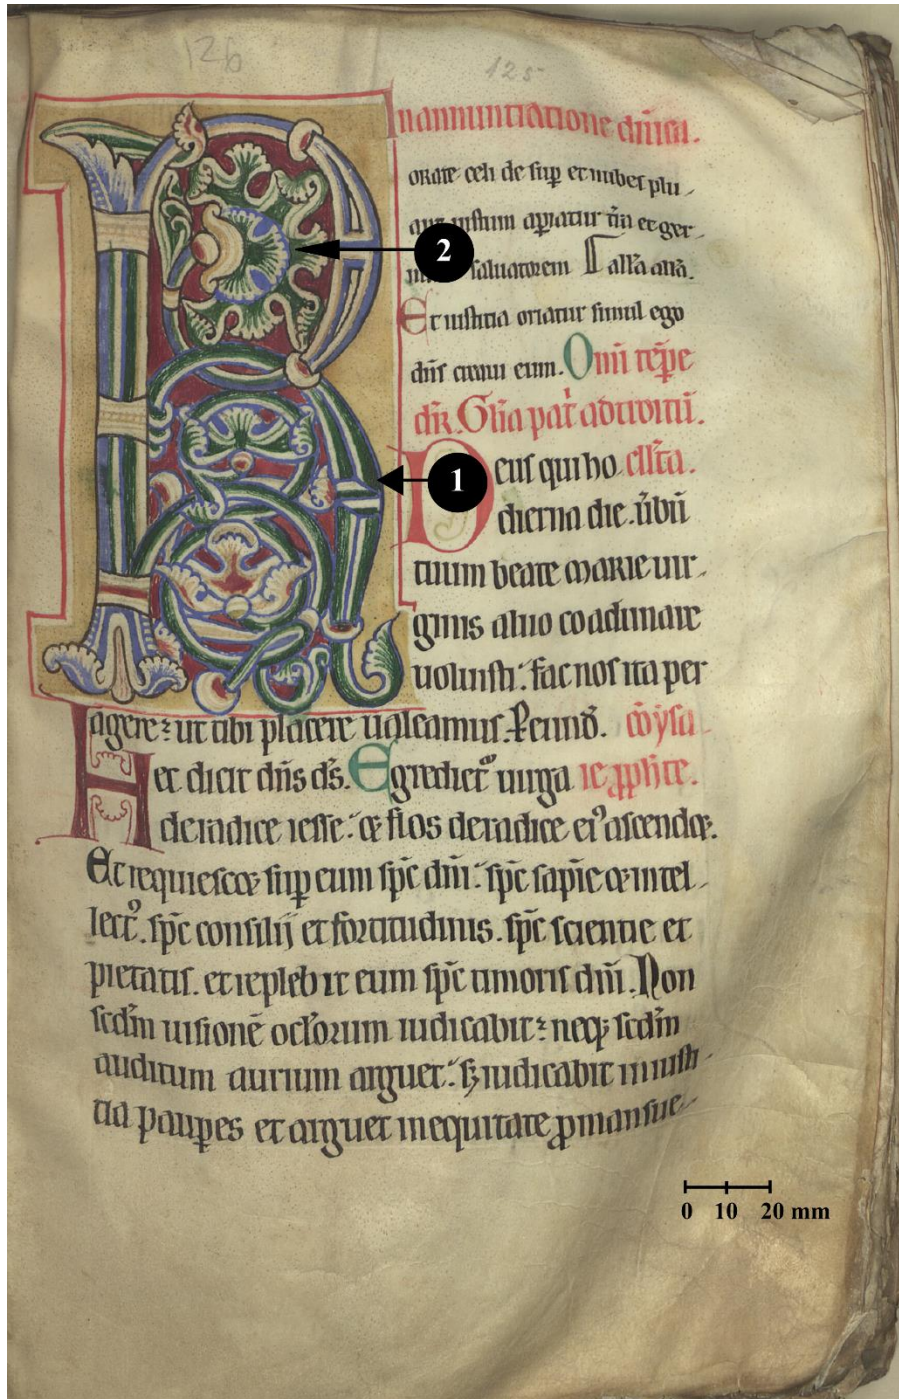 126
125
In annuntiatione dn̄ica.
R
orate celi de sup et nubes plu
aut iustum aꝑiatur t̄ra et ger
saluatorem all̄a
Et iustitia oriatur simul ego
dn̄s creaui eum. Om̄i te̅pe
Gl̄ia pat̄
2
1
Deus qui ho coll̄ta.
dierna die. u̅bu̅
tuum beate marie uir
ginis aluo coadunare
uoluisti: fac nos ita per
agere: ut tibi placere ualeamus. Per
Hec dicit dn̄s ds̄. Egrediet᷒ uirga ie ꝓphīte.
de radice iesse: et flos de radice ei᷒ ascendet.
Et requiescet sup eum sp̄c dn̄i: sp̄c sapīe et intel
lect᷒. sp̄c consilij et fortitudinis. sp̄c scientie et
pietatis. et replebit eum sp̄c timoris dn̄i. Non
scd̄m uisione̅ ocl̄orum iudicabit: neqꝫ scd̄m
auditum aurium arguet: sꝫ iudicabit in iusti
tia pauꝑes et arguet in equitate ꝓ mansue
0 10 20 mm